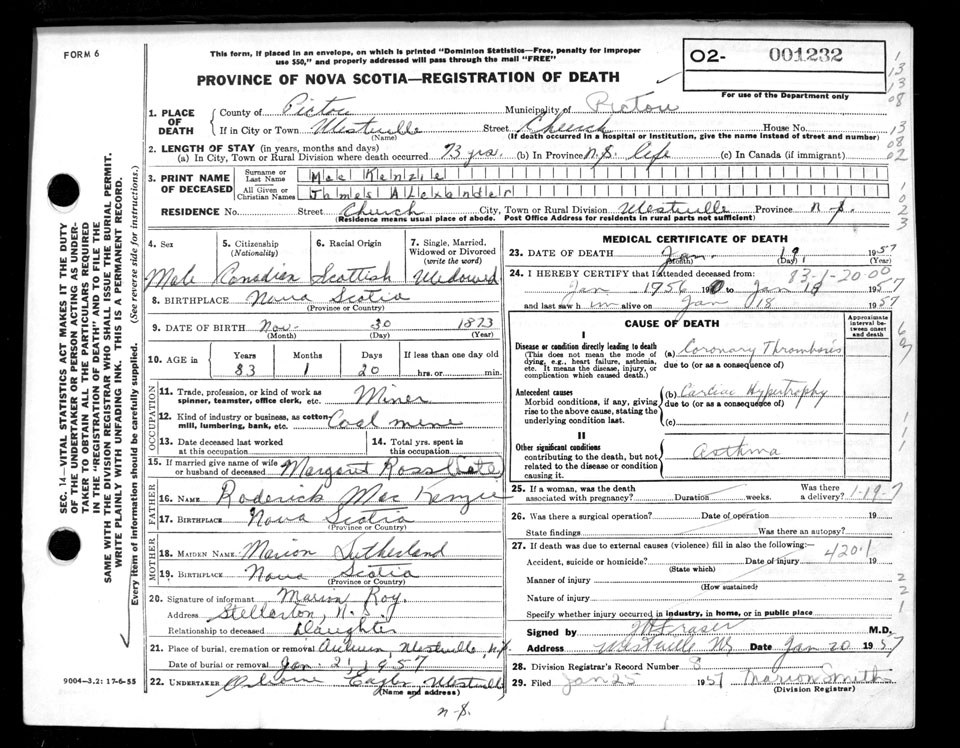 FORM 6
This form, if placed in an envelope, on which is printed "Dominion Statistics—Free, penalty for improper
use $50," and properly addressed will pass through the mail "FREE"
PROVINCE OF NOVA SCOTIA—REGISTRATION OF DEATH
O2- 001232
For use of the Department only
1. PLACE OF DEATH
County of Pictou Municipality of Pictou
If in City or Town Westville Street Church House No.
(Name) (If death occurred in a hospital or institution, give the name instead of street and number)
2. LENGTH OF STAY (in years, months and days)
(a) In City, Town or Rural Division where death occurred 73 yrs. (b) In Province N.S. life (c) In Canada (if immigrant)
3. PRINT NAME OF DECEASED
Surname or Last Name Mac Kenzie
All Given or Christian Names James Alexander
RESIDENCE No. Street Church City, Town or Rural Division Westville Province N.S.
(Residence means usual place of abode. Post Office Address for residents in rural parts not sufficient)
4. Sex 5. Citizenship (Nationality) 6. Racial Origin 7. Single, Married, Widowed or Divorced (write the word)
Male Canadian Scottish Widowed
8. BIRTHPLACE Nova Scotia
(Province or Country)
9. DATE OF BIRTH Nov. 30 1873
(Month) (Day) (Year)
10. AGE in Years Months Days If less than one day old
83 1 20 hrs. or min.
OCCUPATION
11. Trade, profession, or kind of work as spinner, teamster, office clerk, etc. Miner
12. Kind of industry or business, as cotton-mill, lumbering, bank, etc. Coal mine
13. Date deceased last worked at this occupation 14. Total yrs. spent in this occupation
15. If married give name of wife or husband of deceased Margaret Ross (Late)
FATHER
16. NAME Roderick Mac Kenzie
17. BIRTHPLACE Nova Scotia
(Province or Country)
MOTHER
18. MAIDEN NAME Marion Sutherland
19. BIRTHPLACE Nova Scotia
(Province or Country)
20. Signature of informant Marion Roy.
Address Stellarton, N.S.
Relationship to deceased Daughter
21. Place of burial, cremation or removal Westville, N.S.
Date of burial or removal Jan. 21, 1957
22. UNDERTAKER Westville
(Name and address)
N.S.
MEDICAL CERTIFICATE OF DEATH
23. DATE OF DEATH Jan. 19, 1957
(Month) (Day) (Year)
83-1-20-00
24. I HEREBY CERTIFY that I attended deceased from:
Jan 1956 to Jan 18 1957
and last saw him alive on Jan 18 1957
CAUSE OF DEATH
Approximate interval between onset and death
I
Disease or condition directly leading to death
(This does not mean the mode of dying, e.g., heart failure, asthenia, etc. It means the disease, injury, or complication which caused death.)
(a) Coronary Thrombosis
due to (or as a consequence of)
Antecedent causes
Morbid conditions, if any, giving rise to the above cause, stating the underlying condition last.
(b) Cardiac Hypertrophy
due to (or as a consequence of)
(c)
II
Other significant conditions
contributing to the death, but not related to the disease or condition causing it.
Asthma
25. If a woman, was the death associated with pregnancy? Duration weeks. Was there a delivery?
1-19-7
26. Was there a surgical operation? Date of operation 19
State findings Was there an autopsy?
27. If death was due to external causes (violence) fill in also the following:—
420.1
Accident, suicide or homicide? Date of injury 19
(State which)
Manner of injury
(How sustained)
Nature of injury
Specify whether injury occurred in industry, in home, or in public place
Signed by Fraser M.D.
Address Westville NS Date Jan 20 1957
28. Division Registrar's Record Number 8
29. Filed Jan 25 1957 Marion Smith
(Division Registrar)
SEC. 14—VITAL STATISTICS ACT MAKES IT THE DUTY
OF THE UNDERTAKER OR PERSON ACTING AS UNDER-
TAKER TO OBTAIN ALL THE PARTICULARS REQUIRED
IN THE "REGISTRATION OF DEATH" AND TO FILE THE
SAME WITH THE DIVISION REGISTRAR WHO SHALL ISSUE THE BURIAL PERMIT.
WRITE PLAINLY WITH UNFADING INK. THIS IS A PERMANENT RECORD.
Every item of information should be carefully supplied. (See reverse side for instructions.)
9004-3.2: 17-6-55